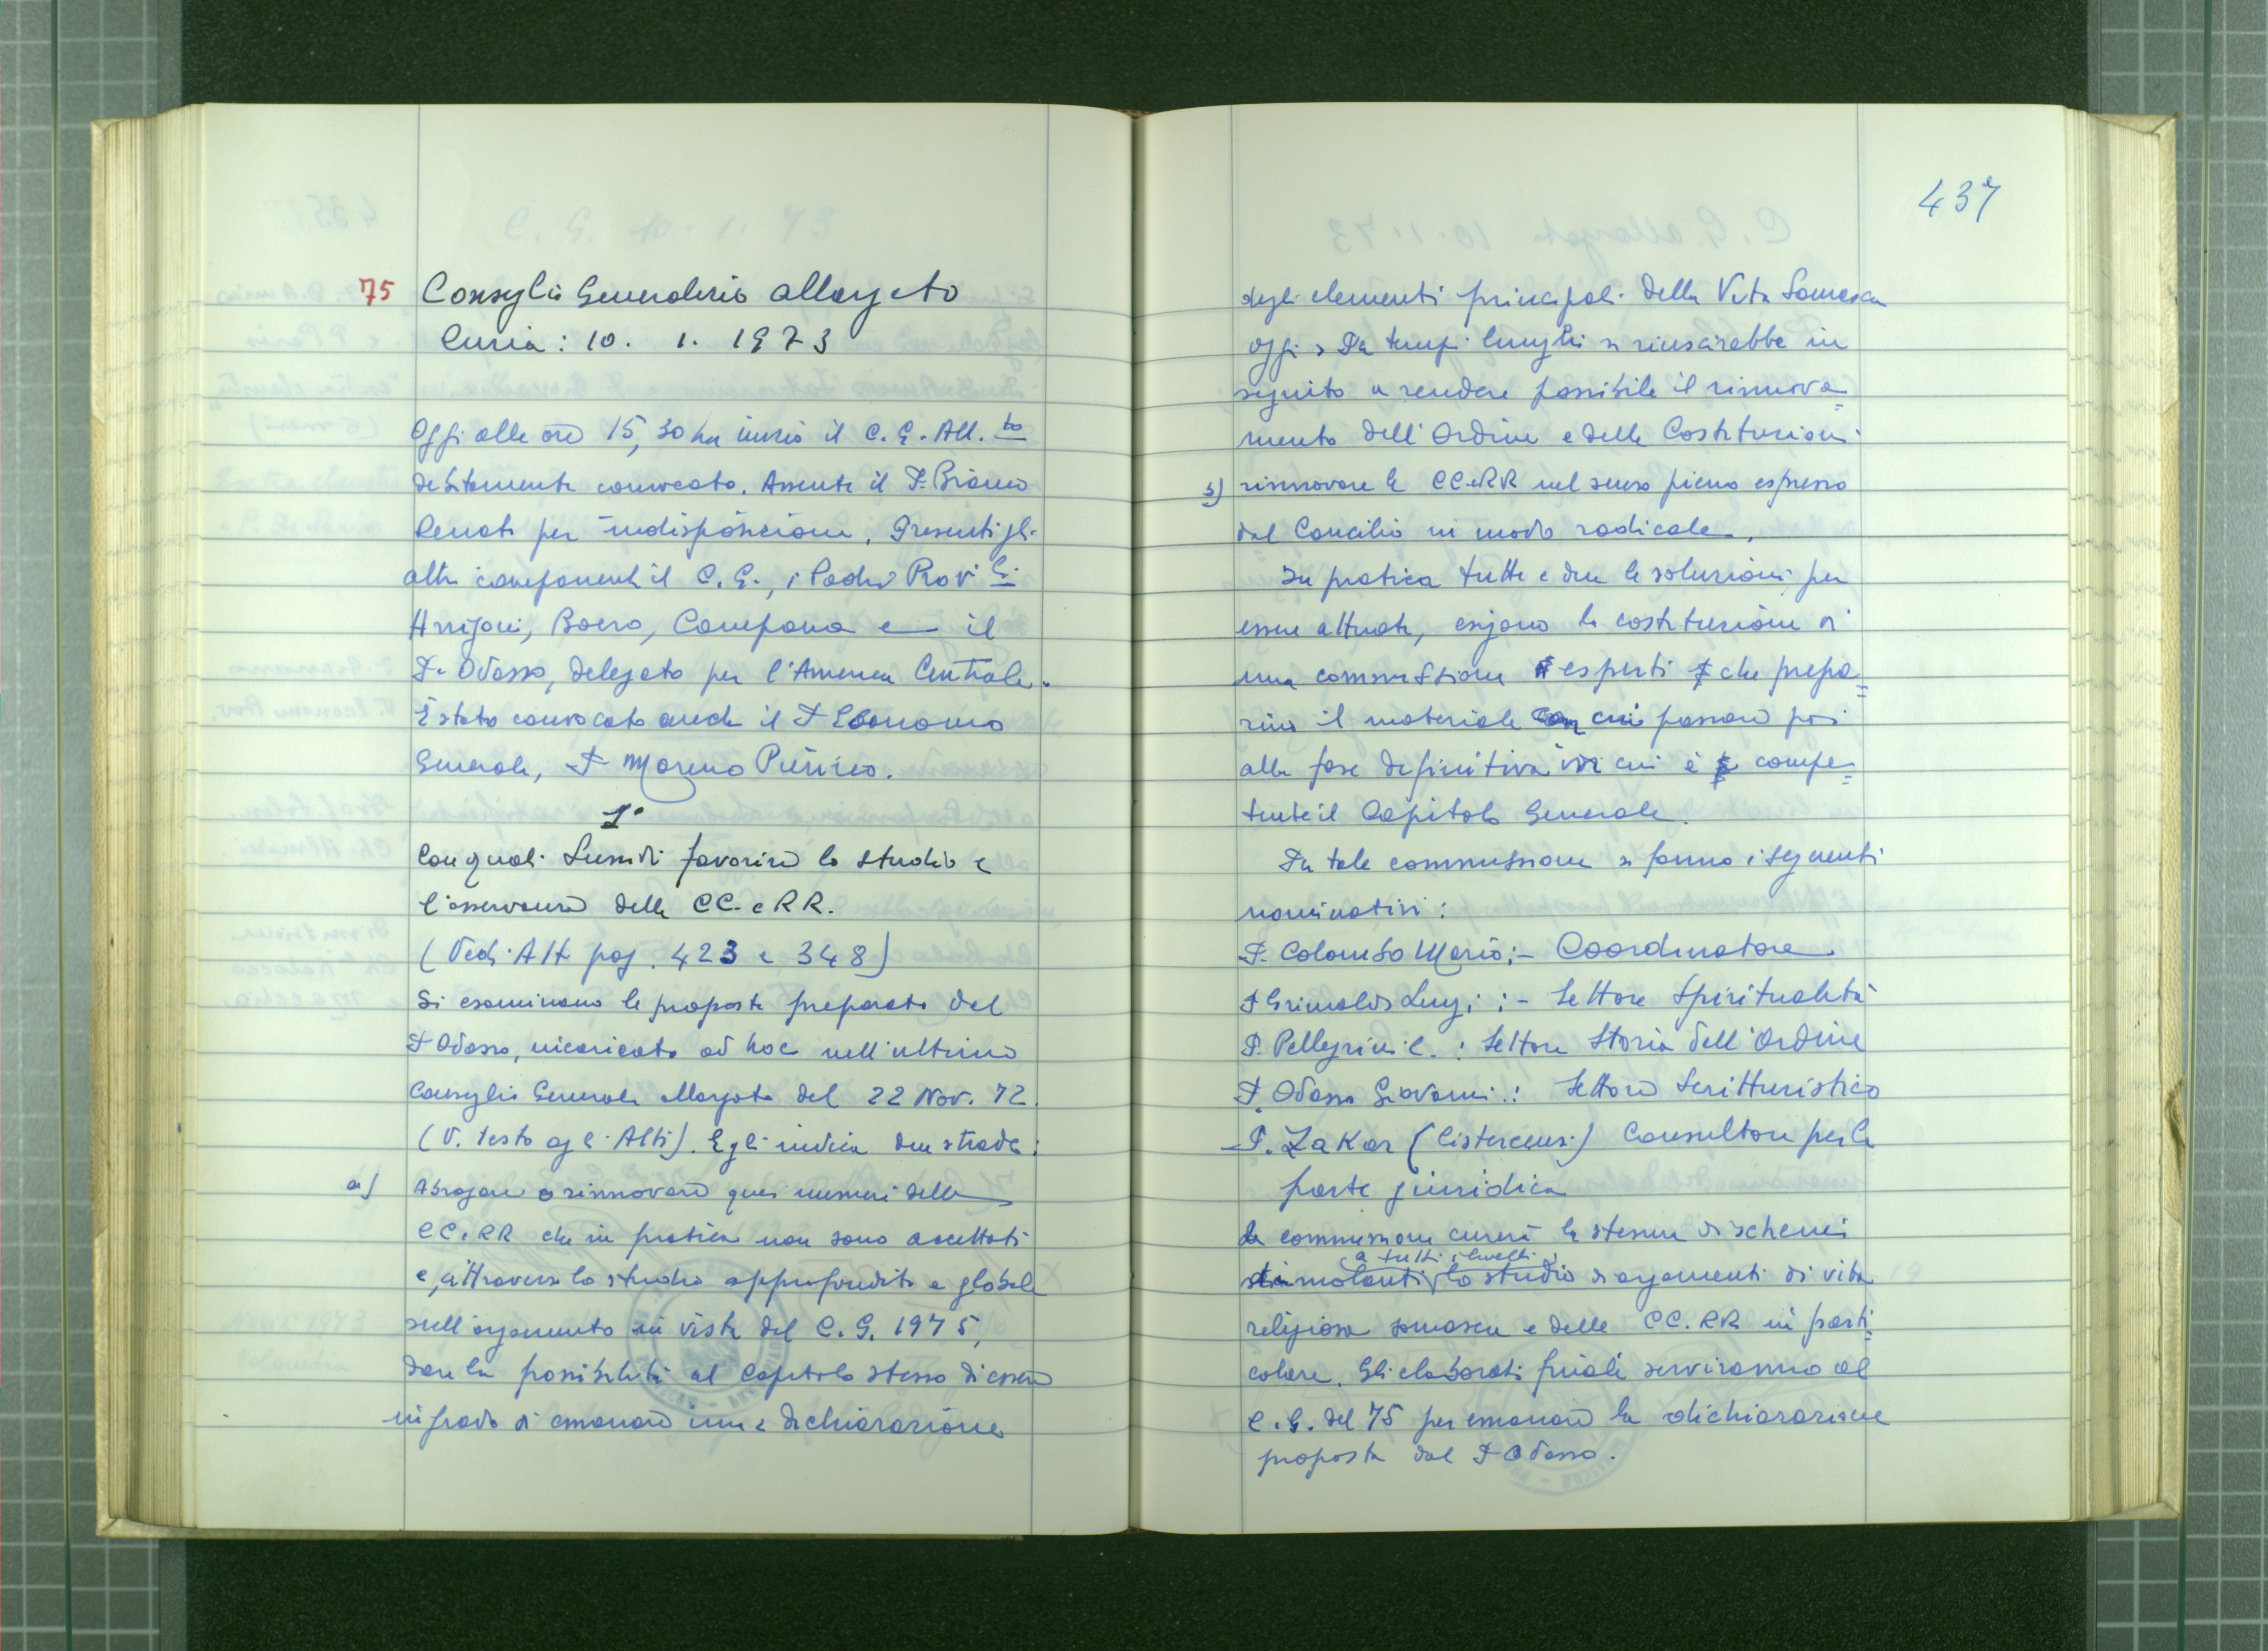 75 Consiglio Generalizio allargato
Curia: 10. 1. 1973
Oggi alle ore 15,30 ha inizio il C. G. All.to
debitamente convocato. Assente il P. Bianco
Renato per indisposizione. Presenti gli
altri componenti il C. G., i Padri Prov.li
Arrigoni, Boero, Campana e il
P. Odasso, delegato per l'America Centrale.
È stato convocato anche il P Economo
Generale, P Moreno
1°
Con quali sussidi favorire lo studio e
l'osservanza delle CC. e RR.
(Vedi Atti pag. 423 e 348)
Si esaminano le proposte preparate dal
P Odasso, incaricato ad hoc nell'ultimo
Consiglio Generale allargato del 22 Nov. 72.
(V. testo agli Atti). Egli indica due strade:
a) Abrogare o rinnovare quei numeri delle
CC. RR che in pratica non sono accettati
e, attraverso lo studio approfondito e globale
sull'argomento in vista del C. G. 1975,
dare la possibilità al Capitolo stesso di essere
in grado di emanare una dichiarazione
437
degli elementi principali della Vita Somasca
oggi. Da tempi lunghi si riuscirebbe in
seguito a rendere possibile il rinnova=
mento dell'Ordine e delle Costituzioni
b) rinnovare le CC e RR nel senso pieno espresso
dal Concilio in modo radicale.
In pratica tutte e due le soluzioni per
essere attuate, esigono la costituzione di
una commissione esperti che prepa=
rino il materiale con cui passare poi
alla fase definitiva in cui è compe=
tente il Capitolo Generale.
Per tale commissione si fanno i seguenti
nominativi:
P. Colombo Mario: - Coordinatore
P Grimaldi Luigi: - Settore Spiritualità
P. Pellegrini C.: Settore Storia dell'Ordine
P. Odasso Giovanni: Settore Scritturistico
- P. Zakar (Cistercensi) Consultore per la
parte giuridica
La commissione curerà la stesura di schemi
a tutti i livelli
stimolanti lo studio di argomenti di vita
religiosa somasca e delle CC. RR in parti=
colare. Gli elaborati finali serviranno al
C. G. del 75 per emanare la dichiarazione
proposta dal P Odasso.